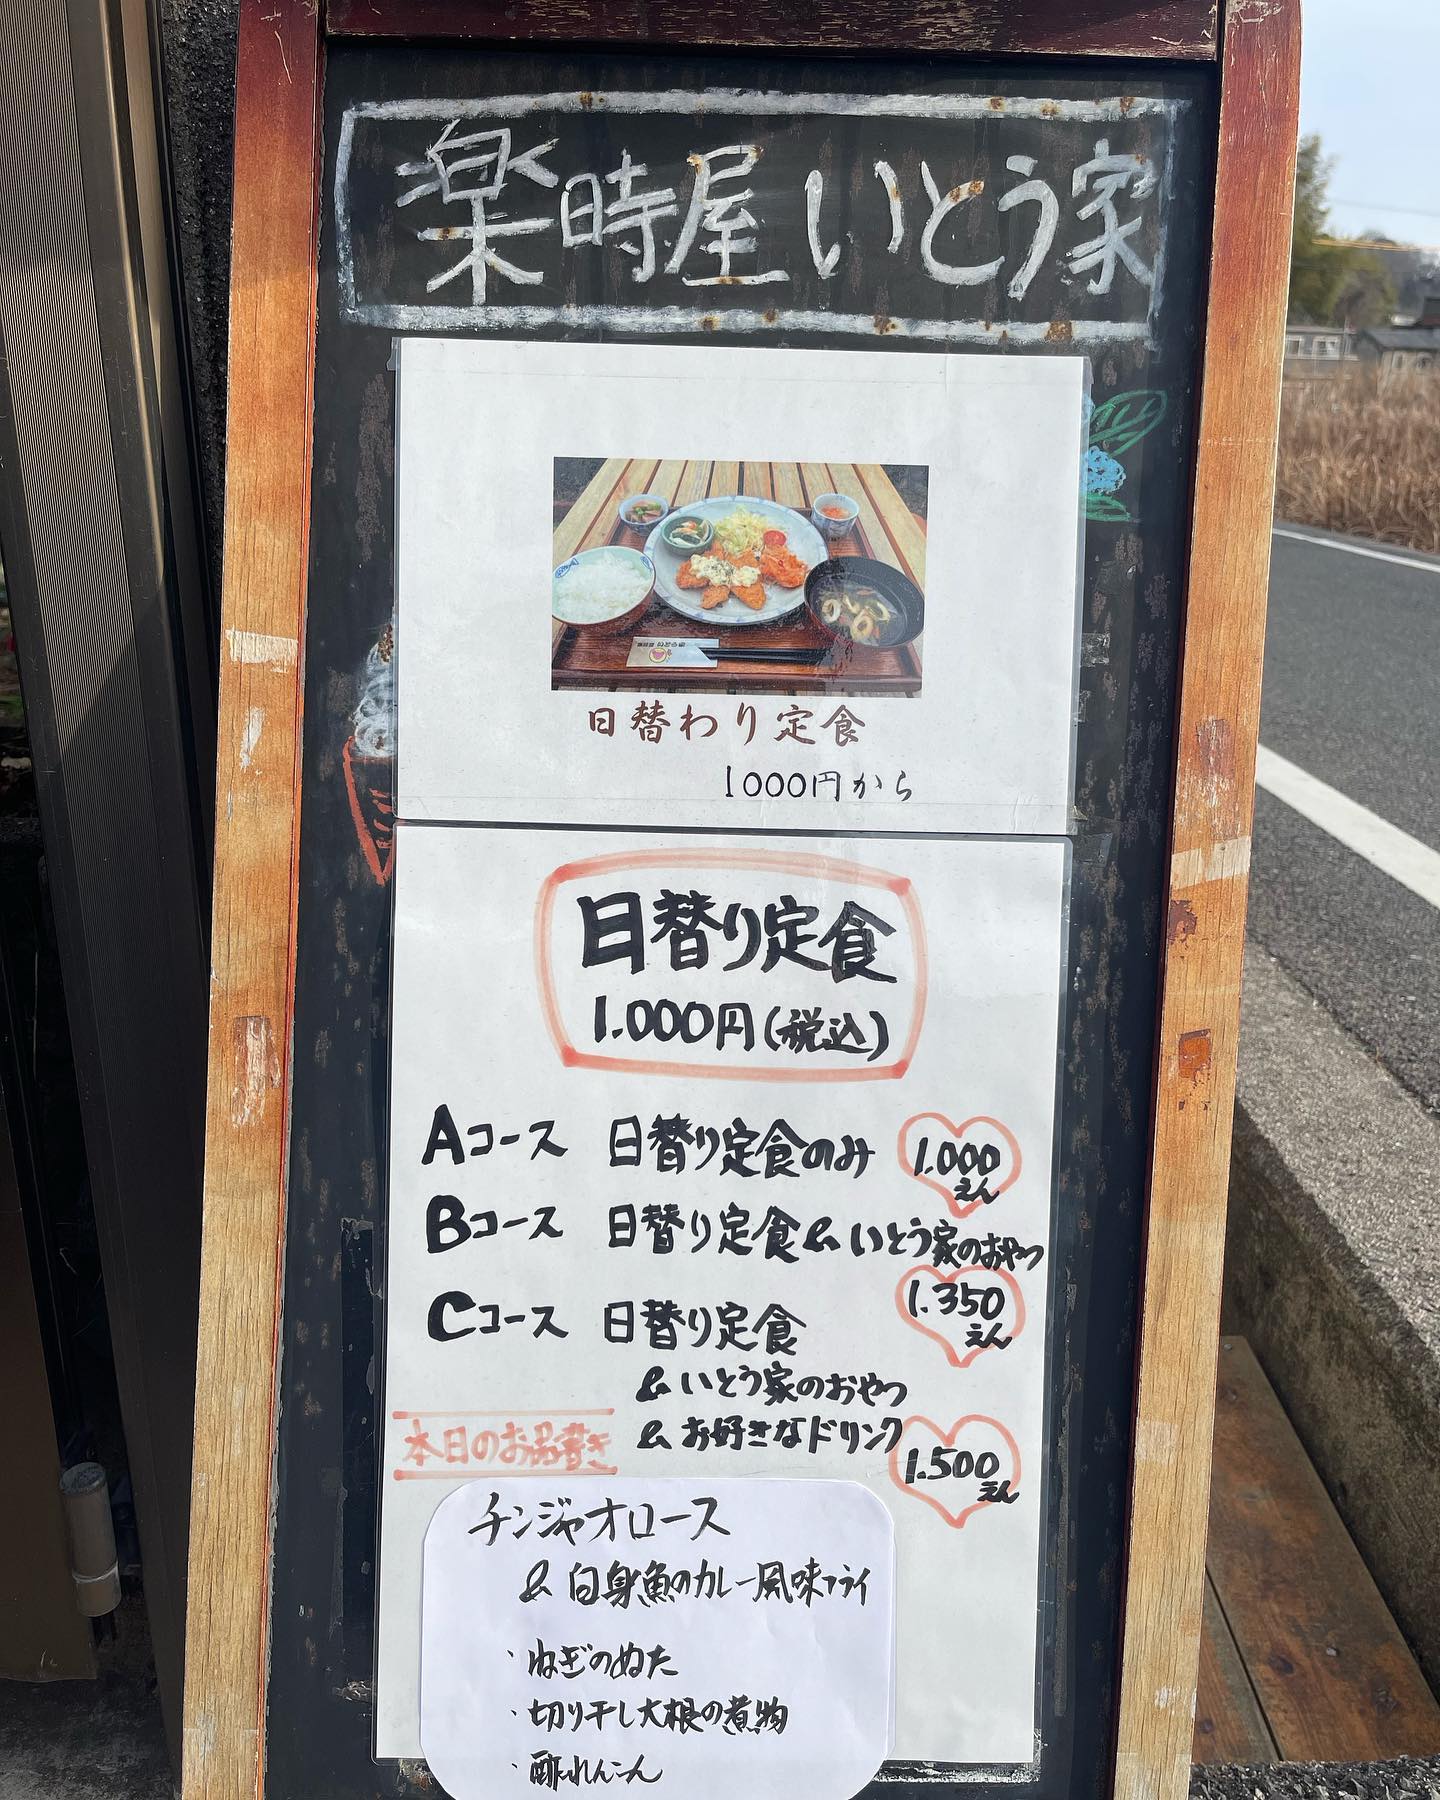 楽時屋いとう家
日替わり定食
1000円から
日替り定食
1.000円(税込)
Aコース 日替り定食のみ 1.000えん
Bコース 日替り定食&いとう家のおやつ
1.350えん
Cコース 日替り定食
&いとう家のおやつ
&お好きなドリンク
1.500えん
本日のお品書き
チンジャオロース
&白身魚のカレー風味フライ
・ねぎのぬた
・切り干し大根の煮物
・酢れんこん